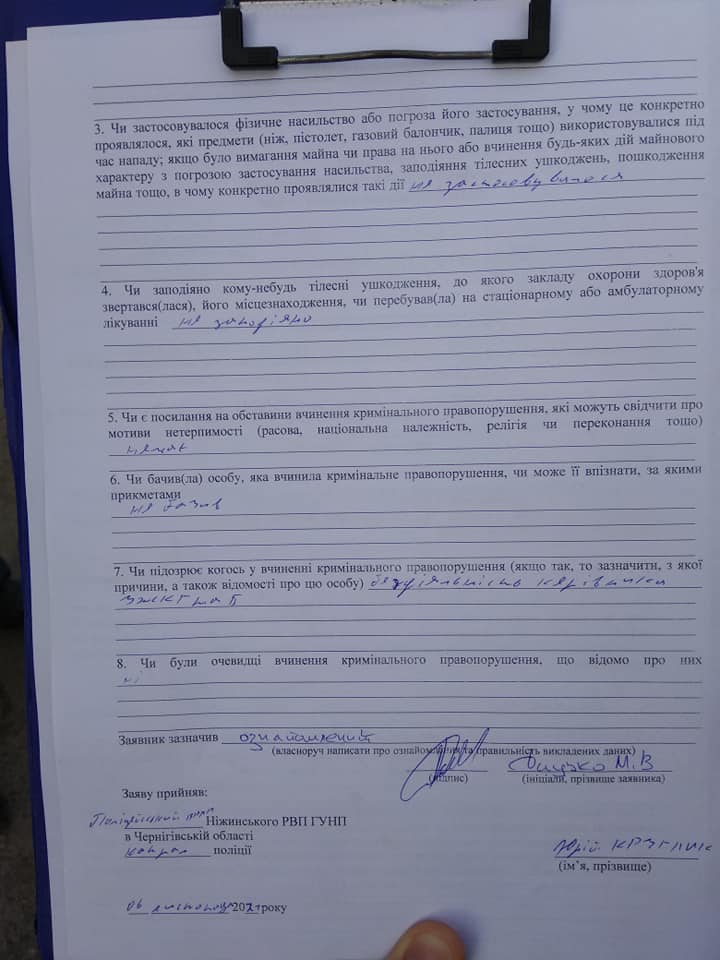 3. Чи застосовувалося фізичне насильство або погроза його застосування, у чому це конкретно
проявлялося, які предмети (ніж, пістолет, газовий балончик, палиця тощо) використовувалися під
час нападу; якщо було вимагання майна чи права на нього або вчинення будь-яких дій майнового
характеру з погрозою застосування насильства, заподіяння тілесних ушкоджень, пошкодження
майна тощо, в чому конкретно проявлялися такі дії не застосовувалося
4. Чи заподіяно кому-небудь тілесні ушкодження, до якого закладу охорони здоров'я
звертався(лася), його місцезнаходження, чи перебував(ла) на стаціонарному або амбулаторному
лікуванні не заподіяно
5. Чи є посилання на обставини вчинення кримінального правопорушення, які можуть свідчити про
мотиви нетерпимості (расова, національна належність, релігія чи переконання тощо)
немає
6. Чи бачив(ла) особу, яка вчинила кримінальне правопорушення, чи може її впізнати, за якими
прикметами
не бачив
7. Чи підозрює когось у вчиненні кримінального правопорушення (якщо так, то зазначити, з якої
причини, а також відомості про цю особу) бездіяльність керівника
8. Чи були очевидці вчинення кримінального правопорушення, що відомо про них
ні
Заявник зазначив ознайомлений
(власноруч написати про ознайомлення та правильність викладених даних)
М.В
(підпис) (ініціали, прізвище заявника)
Заяву прийняв:
Поліцейський Ніжинського РВП ГУНП
в Чернігівській області
капрал поліції
Юрій
(ім’я, прізвище)
06 листопада 2021 року